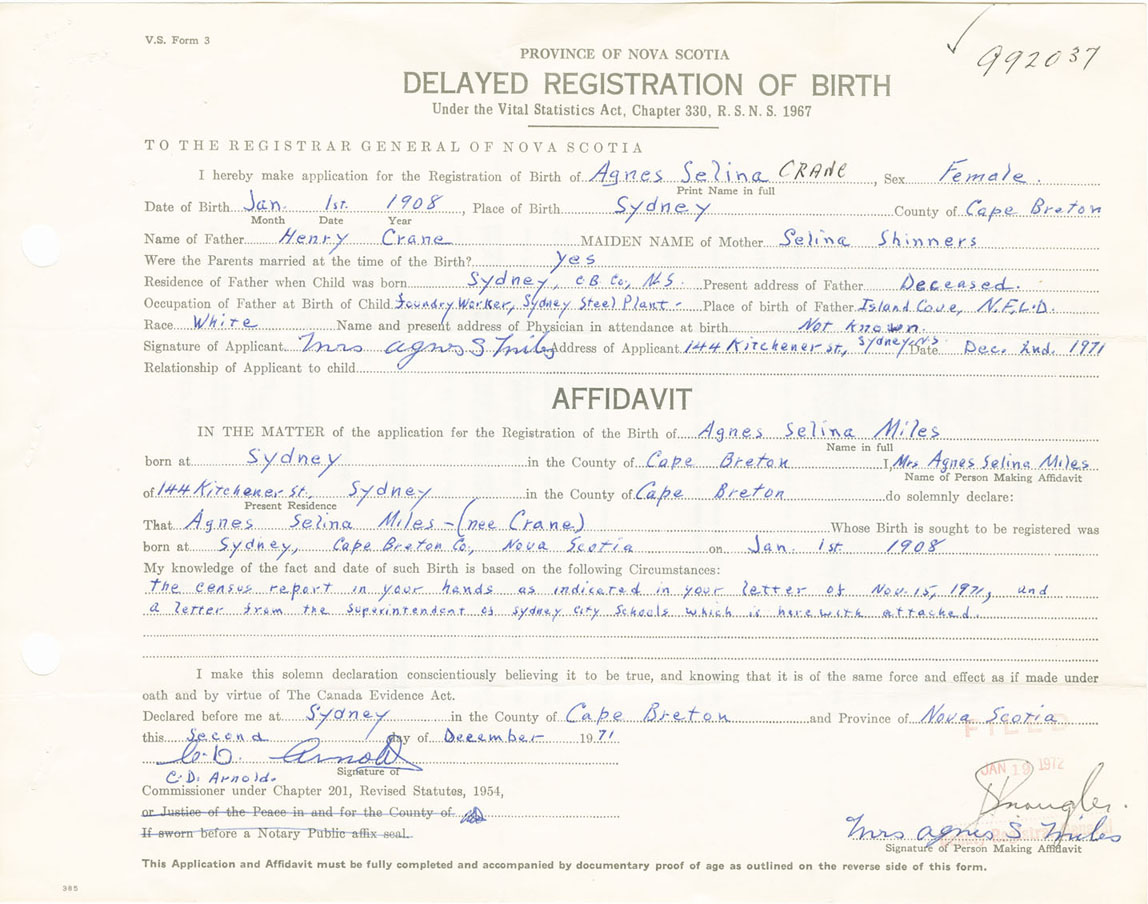 V.S. Form 3
992037
PROVINCE OF NOVA SCOTIA
DELAYED REGISTRATION OF BIRTH
Under the Vital Statistics Act, Chapter 330, R. S. N. S. 1967
TO THE REGISTRAR GENERAL OF NOVA SCOTIA
I hereby make application for the Registration of Birth of Agnes Selina CRANE, Sex Female.
Print Name in full
Date of Birth Jan. 1st. 1908, Place of Birth Sydney County of Cape Breton
Month Date Year
Name of Father Henry Crane MAIDEN NAME of Mother Selina Shinners
Were the Parents married at the time of the Birth? Yes
Residence of Father when Child was born Sydney, C.B. Co., N.S. Present address of Father Deceased.
Occupation of Father at Birth of Child Foundry Worker, Sydney Steel Plant - Place of birth of Father Island Cove, N.F.L.D.
Race White Name and present address of Physician in attendance at birth Not Known.
Signature of Applicant Mrs Agnes S Miles Address of Applicant 144 Kitchener St., Sydney, N.S. Date Dec. 2nd. 1971
Relationship of Applicant to child
AFFIDAVIT
IN THE MATTER of the application for the Registration of the Birth of Agnes Selina Miles
Name in full
born at Sydney in the County of Cape Breton I, Mrs Agnes Selina Miles
Name of Person Making Affidavit
of 144 Kitchener St., Sydney in the County of Cape Breton do solemnly declare:
Present Residence
That Agnes Selina Miles - (nee Crane) Whose Birth is sought to be registered was
born at Sydney, Cape Breton Co., Nova Scotia on Jan. 1st. 1908
My knowledge of the fact and date of such Birth is based on the following Circumstances:
The census report in your hands as indicated in your letter of Nov. 15, 1971, and
a letter from the Superintendent of Sydney City Schools which is herewith attached.
I make this solemn declaration conscientiously believing it to be true, and knowing that it is of the same force and effect as if made under
oath and by virtue of The Canada Evidence Act.
Declared before me at Sydney in the County of Cape Breton and Province of Nova Scotia
FILED
this Second day of December 1971
C. D. Arnold
Signature of
JAN 19 1972
C. D. Arnold.
Commissioner under Chapter 201, Revised Statutes, 1954,
or Justice of the Peace in and for the County of
If sworn before a Notary Public affix seal.
Mrs Agnes S Miles
Signature of Person Making Affidavit
This Application and Affidavit must be fully completed and accompanied by documentary proof of age as outlined on the reverse side of this form.
385